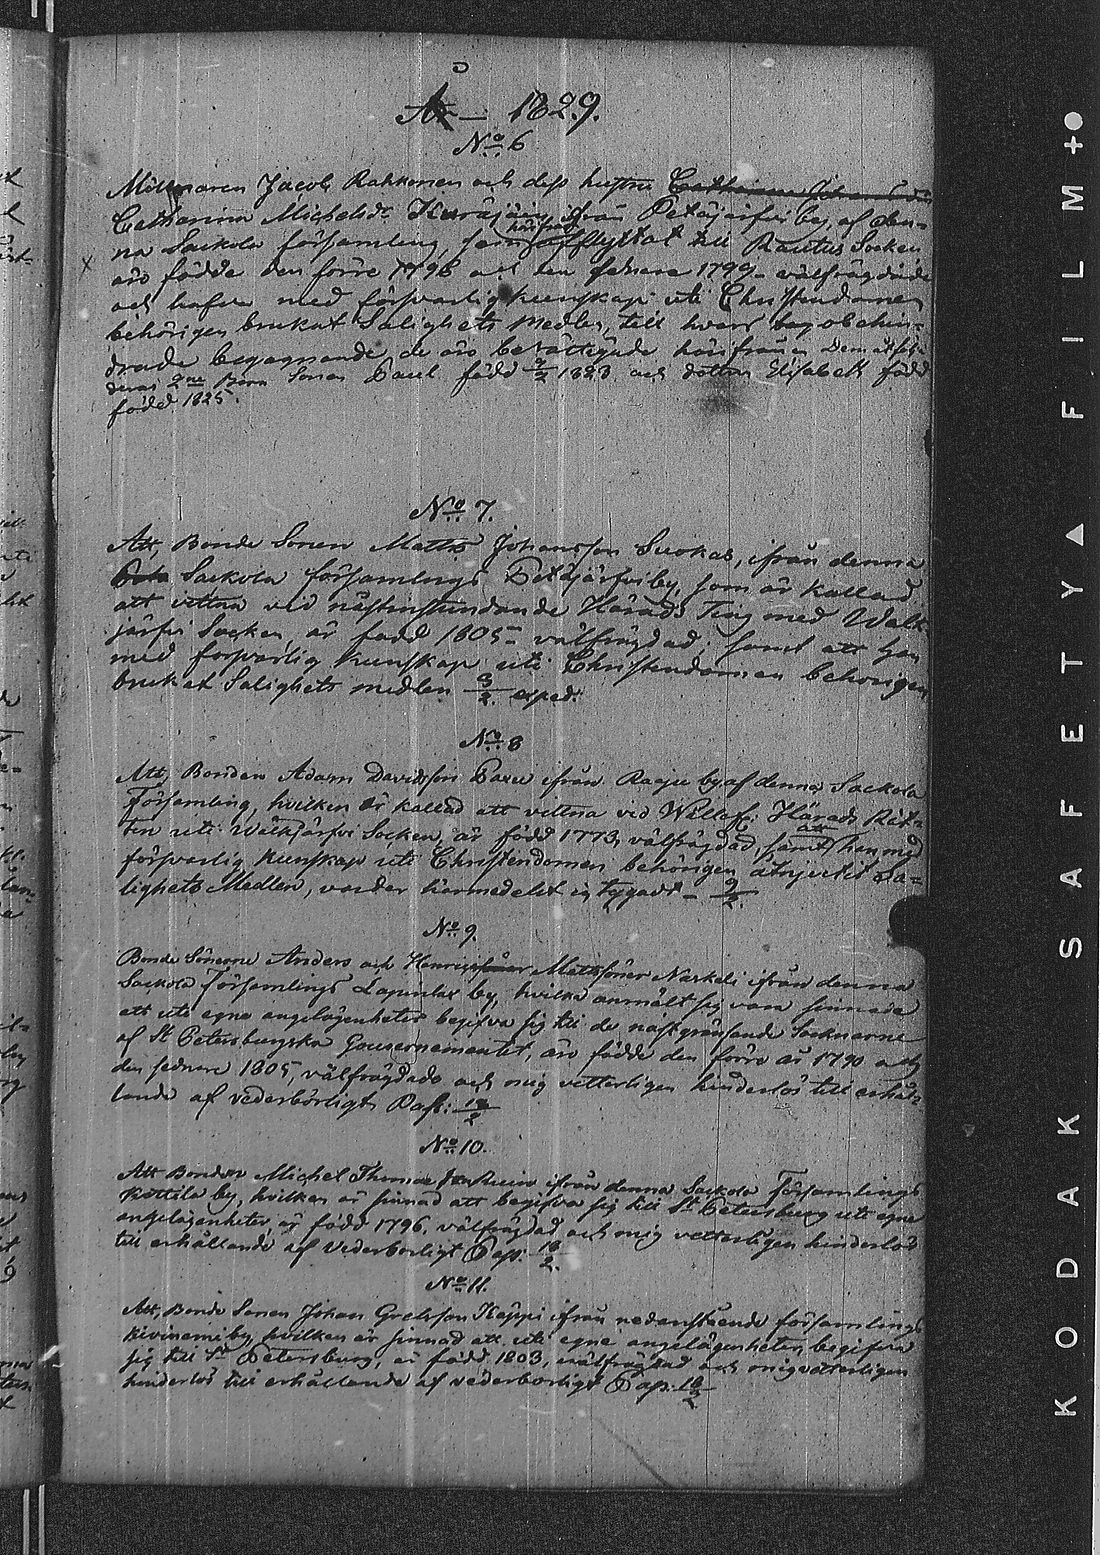 År 1829.
No 6
Jacob Rakkonen och dess hustru
Catharina Michelsdr ifrån Petäjärfvi by, af den-
na Sackola församling, som härifrån afflyttat till Rautus Socken
äro födde den förre 1798 och den sednare 1799 välfrägdade
och hafva med försvarlig kunskap uti Christendomen
behörigen brukat Salighets Medlen, till hvars obehin-
drade begagnande de äro berättigade härifrån. Dem åtföl-
deras 2ne Barn Sonen Paul född 1823 och dottren Elisabeth född
född 1825.
No 7.
Att, Bonde Sonen Matts Johansson Suokas, ifrån denna
Sackola församlings Petäjärfvi by, som är kallad
att vittna vid nästinstundande Härads Ting med Walk-
järfvi Socken, är född 1805 välfrägdad, samt att han
med försvarlig kunskap uti Christendomen behörigen
brukat Salighets medlen 3/2 exped:
No 8
Att, Bonden Adam Davidsson Paxu ifrån Raaju by af denna Sackola
Församling, hvilken är kallad att vittna vid Härads Rät-
ten uti Walkjärfvi Socken, är född 1773, välfrägdad, samt att han med
försvarlig kunskap uti Christendomen behörigen Sa-
lighets Medlen, varder härmedelst 9/2.
No 9.
Bonde Sönerne Anders och Henric Mattssöner Naskali ifrån denna
Sackola Församlings Lapinlax by, hvilka anmält sig vara sinnade
att uti egna angelägenheter begifva sig till de näst gränsande Socknerne
af St Petersburgska Gouvernementet, äro födde den förre år 1790 och
den sednare 1805, välfrägdade och mig vetterligen hinderlös till erhål-
lande af vederbörligt Pass: 18/2
No 10.
Att Bonden Michel Thomasson ifrån denna Sackola Församlings
Kottila by, hvilken är sinnad att begifva sig till St Petersburg uti egne
angelägenheter, är född 1796, välfrägdad och mig vetterligen hinderlös
till erhållande af vederbörligt Pass. 18/2.
No 11.
Att, Bonde Sonen Johan Käppi ifrån nedanstående församlings
Kiviniemi by, hvilken är sinnad att uti egne angelägenheter, begifva
sig till St Petersburg, är född 1803, välfrägdad och mig vetterligen
hinderlös till erhållande af vederbörligt Pass. 18/2
KODAK SAFETY FILM